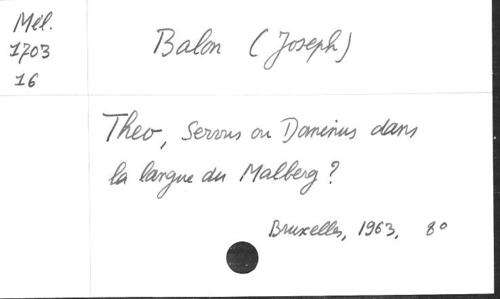 Mél.
1703
16
Balon (Joseph)
Theo, servus ou Dominus dans
la langue du Malberg?
Bruxelles, 1963, 8º